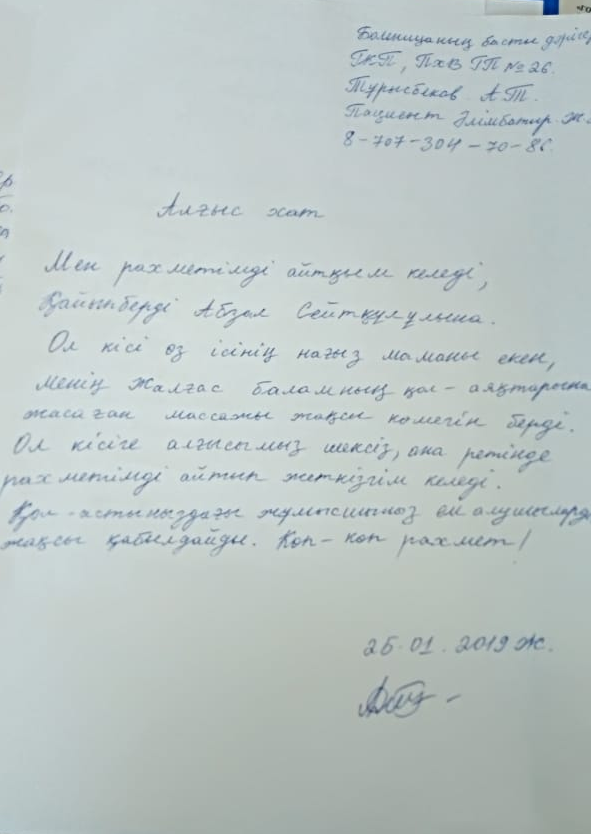 Болницаның басты дәрігер
ГКП, ПХВ ГП № 26.
Турысбеков А.Т.
Пациент Әлімбатыр Ж.
8-707-304-70-86.
Алғыс хат
Мен рахметімді айтқым келеді,
Қайынберді Абзал Сейтқұлұлына.
Ол кісі өз ісінің нағыз маманы екен,
Менің Жалғас баламның қол-аяқтарына
жасаған массажы жақсы көмегін берді.
Ол кісіге алғысымыз шексіз, ана ретінде
рахметімді айтып жеткізгім келеді.
Қол-астыңыздағы жұмысшыңыз ем алушыларды
жақсы қабылдайды. Көп-көп рахмет!
25.01.2019 ж.